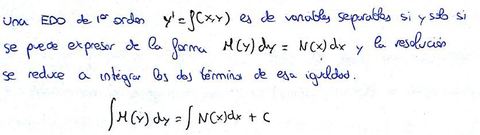 Una EDO de 1er orden y' = f(x,y) es de variables separables si y solo si
se puede expresar de la forma M(y) dy = N(x) dx y la resolución
se reduce a integrar los dos términos de esa igualdad.
∫M(y) dy = ∫N(x) dx + C